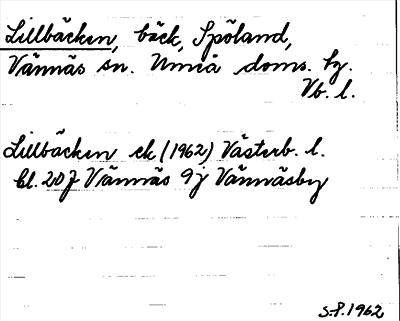 Lillbäcken, bäck, Spöland,
Vännäs sn. Umeå doms. hg.
Vb. l.
Lillbäcken ek (1962) Västerb. l.
bl. 20J Vännäs 9j Vännäsby
S.P. 1962